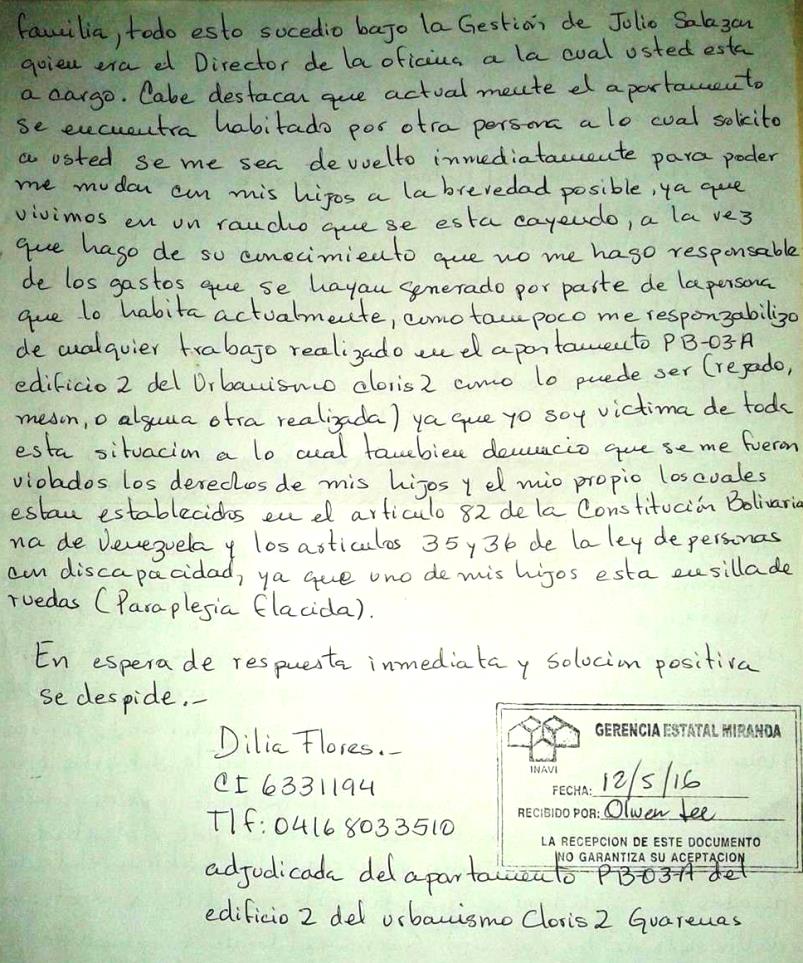 familia, todo esto sucedio bajo la Gestión de Julio Salazar
quien era el Director de la oficina a la cual usted esta
a cargo. Cabe destacar que actualmente el apartamento
se encuentra habitado por otra persona a lo cual solicito
a usted se me sea devuelto inmediatamente para poder
me mudar con mis hijos a la brevedad posible, ya que
vivimos en un rancho que se esta cayendo, a la vez
que hago de su conocimiento que no me hago responsable
de los gastos que se hayan generado por parte de la persona
que lo habita actualmente, como tampoco me responzabilizo
de cualquier trabajo realizado en el apartamento PB-03-A
edificio 2 del Urbanismo cloris 2 como lo puede ser (rejado,
meson, o alguna otra realizada) ya que yo soy victima de toda
esta situacion a lo cual tambien denuncio que se me fueron
violados los derechos de mis hijos y el mio propio los cuales
estan establecidos en el articulo 82 de la Constitución Bolivaria
na de Venezuela y los articulos 35 y 36 de la ley de personas
con discapacidad, ya que uno de mis hijos esta en silla de
ruedas (Paraplegia flacida).
En espera de respuesta inmediata y solucion positiva
se despide.-
Dilia Flores.-
CI 6331194
Tlf: 04168033510
adjudicada del apartamento PB-03-A del
edificio 2 del urbanismo Cloris 2 Guarenas
INAVI
GERENCIA ESTATAL MIRANDA
FECHA: 12/5/16
RECIBIDO POR: Olwen Lee
LA RECEPCION DE ESTE DOCUMENTO
NO GARANTIZA SU ACEPTACION